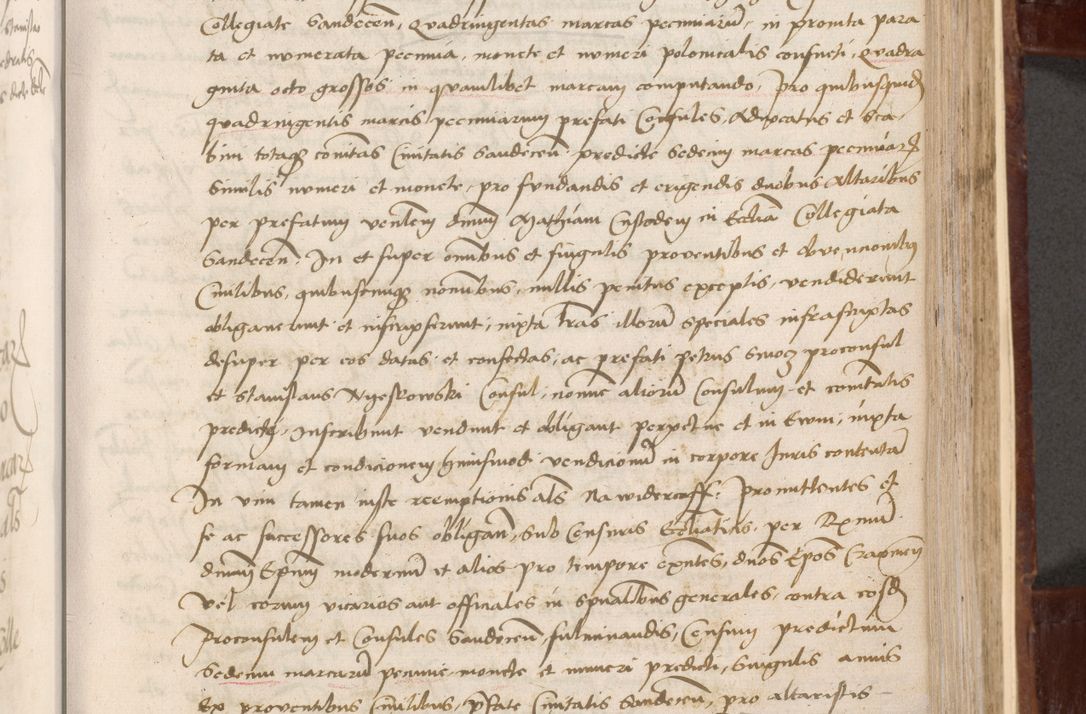 Collegiate Sandecen, Quadringentas marcas pecuniarum, in promta para
ta et numerata pecunia, monete et numeri polonicalis consueti, Quadra
ginta octo grossos in quamlibet marcam computando, Pro quibusquid
quadringentis marcis pecuniarum prefati Consules, Advocatus et Sca,
bini totaque comitas Civitatis Sandecen predicte Sedecim marcas pecuniar
Similis numeri et monete, pro fundandis et erigendis duobus Altaribus
per prefatum venlem dnum Mathiam Custodem in Ecclia Collegiata
Sandecen, In et super omibus et singulis proventibus et obvencionibus
Civilibus, quibuscunque nominibus, nullis penitus exceptis, vendiderunt
obligaverunt et inscripserunt, iuxta lras illorum speciales infrascriptas
desuper per eos datas et confectas, ac prefati petrus proconsul
et Stanislaus Consul, nomine aliorum Consulum et comitatis
predicte, Inscribunt vendunt et obligant perpetue et in Evum, iuxta
formam et condicionem huiusmodi vendicionum in corpore Iuris contentam
In vim tamen iuste reemptionis als Na widerorff. Promittentes et
se ac successores suos obligan, sub Censuris Eccliaticis, per Rxmum
dnum Epum modernum et alios pro tempore exntes, dnos Epos Cracovien
vel eorum vicarios aut officiales in spualibus generales, contra eosd
Proconsulem et Consules Sandecen, fulminandis, Censum predictum
Sedecim marcarum pecunie monete et numeri predicti, singulis annis
Ex proventibus Civilibus, pfate Civitatis Sandecen, pro altaristis